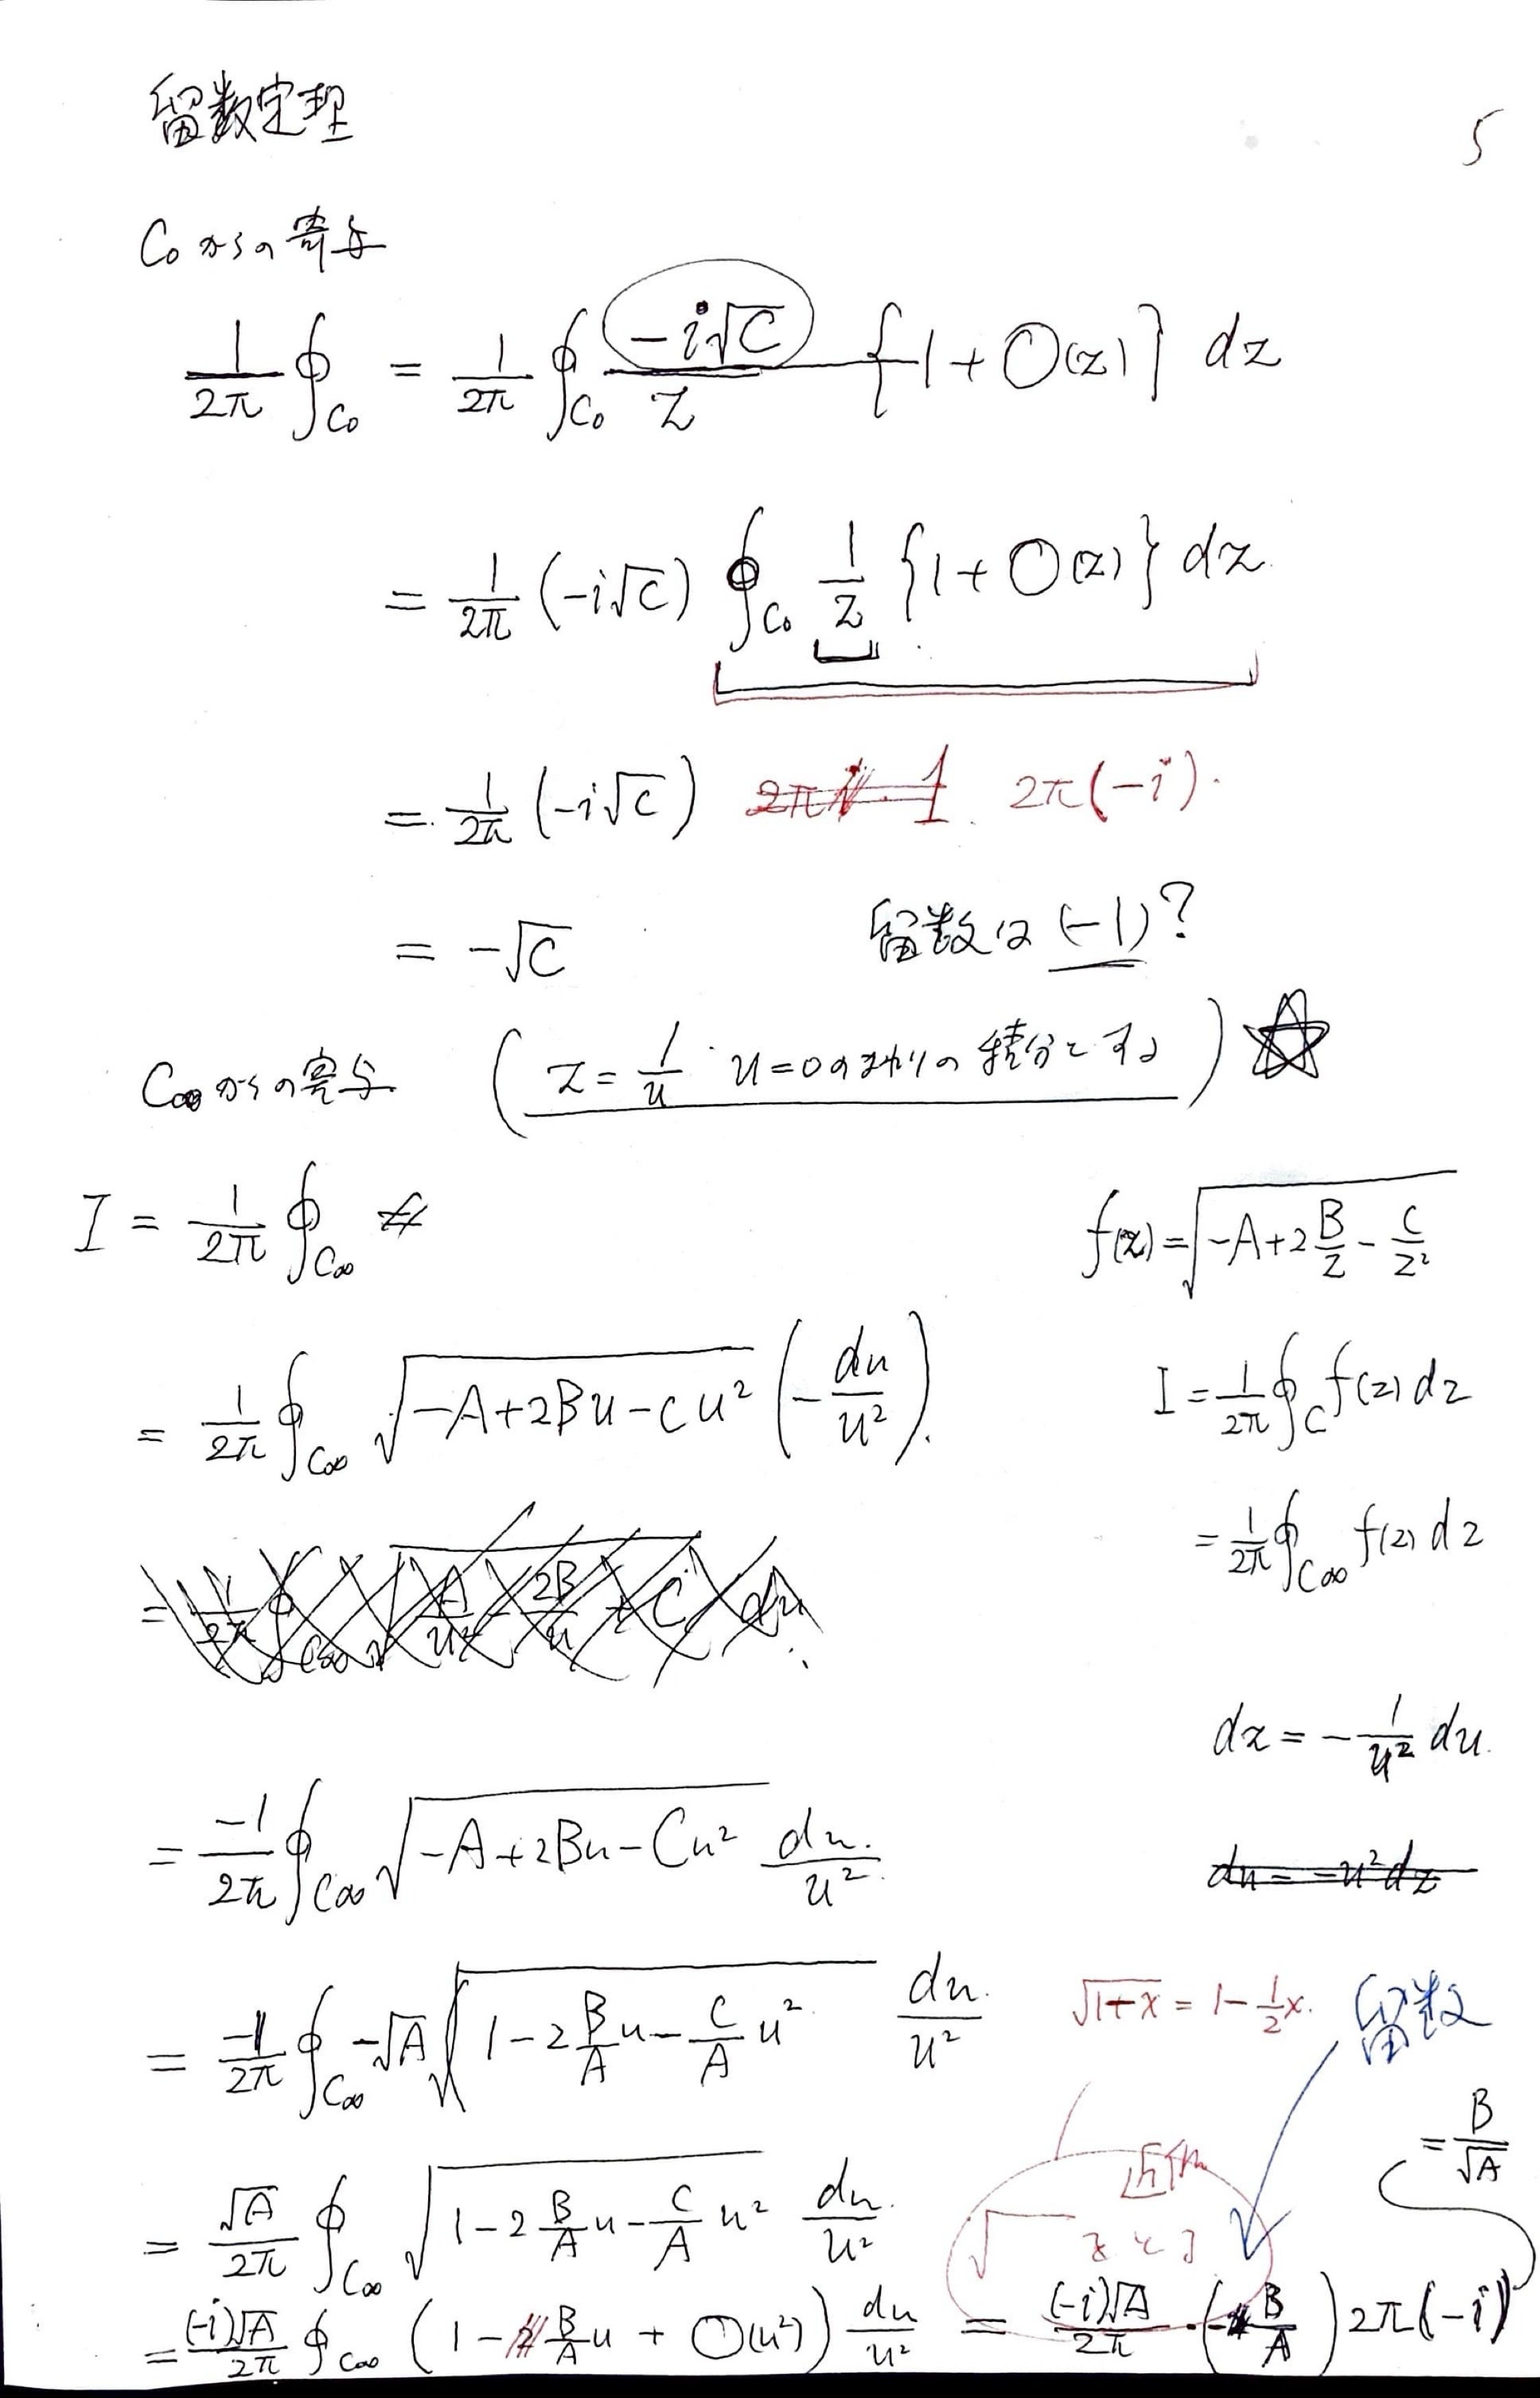 留数定理
5
C₀からの寄与
1/2π ∮_C₀ = 1/2π ∮_C₀ -i√C/z {1+O(z)} dz
= 1/2π (-i√C) ∮_C₀ 1/z {1+O(z)} dz.
= 1/2π (-i√C) 2π(-i).
= -√C 留数は (-1)?
C∞からの寄与 (z=1/u u=0のまわりの積分とする) ☆
I = 1/2π ∮_C∞
f(z)=√(-A+2B/z-C/z²)
= 1/2π ∮_C∞ √(-A+2Bu-Cu²) (-du/u²).
I = 1/2π ∮_C f(z)dz
= 1/2π ∮_C∞ f(z)dz
dz = -1/u² du.
= -1/2π ∮_C∞ √(-A+2Bu-Cu²) du/u²
du = -u²dz
= -1/2π ∮_C∞ -√A √(1-2B/A u-C/A u²) du/u²
√1+x = 1-1/2x.
留数
= B/√A
= √A/2π ∮_C∞ √(1-2B/A u-C/A u²) du/u²
= (-i)√A/2π ∮_C∞ (1-B/A u+O(u²)) du/u² = (-i)√A/2π ·(-B/A) 2π(-i)